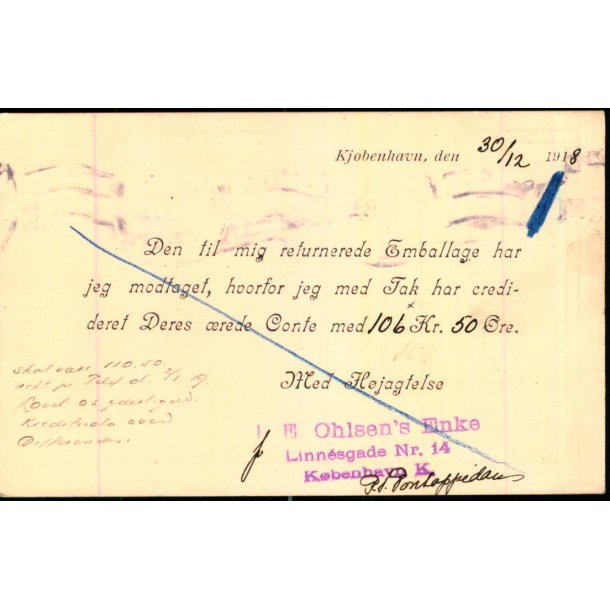 Kjøbenhavn, den 30/12 1918
Den til mig returnerede Emballage har
jeg modtaget, hvorfor jeg med Tak har credi-
deret Deres ærede Conto med 106 Kr. 50 Øre.
Med Højagtelse
skal være 110.50.
d. 2/1 19.
Kreditnota over
Differencen.
E Ohlsen's Enke
Linnésgade Nr. 14
København K.
Pontoppidan